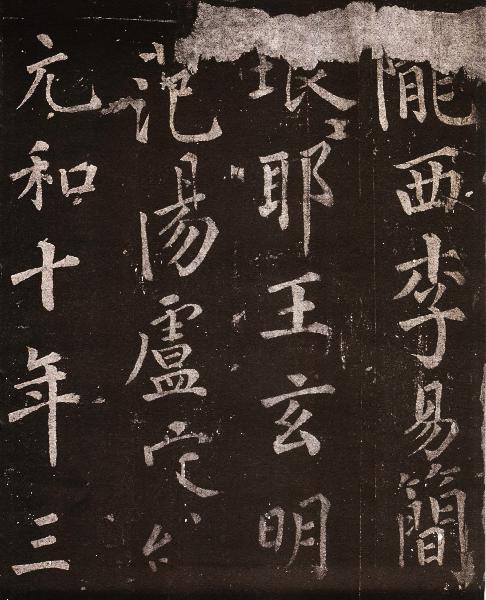 隴西李易簡
琅耶王玄明
范陽盧定
元和十年三